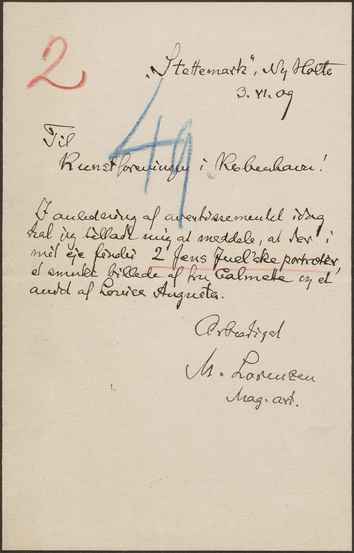 2
"Stettemark", Ny Holte
3. VI. 09
49
Til
Kunstforeningen i København!
I anledning af avertissementet idag
skal jeg tillade mig at meddele, at der i
mit eje findes 2 Jens Juel'ske portræter,
et smukt billede af fru Calmette og et
andet af Louise Augusta.
Ærbødigst
M. Lorenzen
Mag. art.